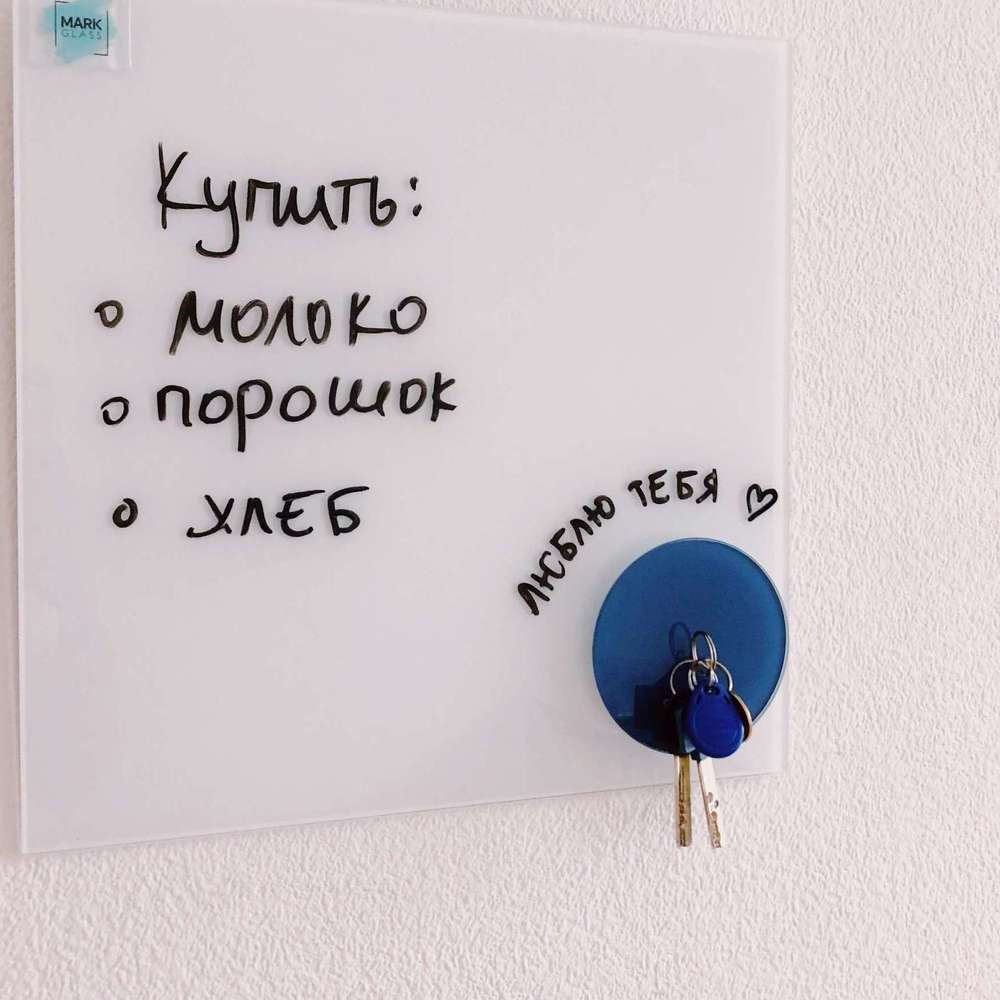 MARK
GLASS
Купить:
молоко
порошок
ХЛЕБ
ЛЮБЛЮ ТЕБЯ ♡